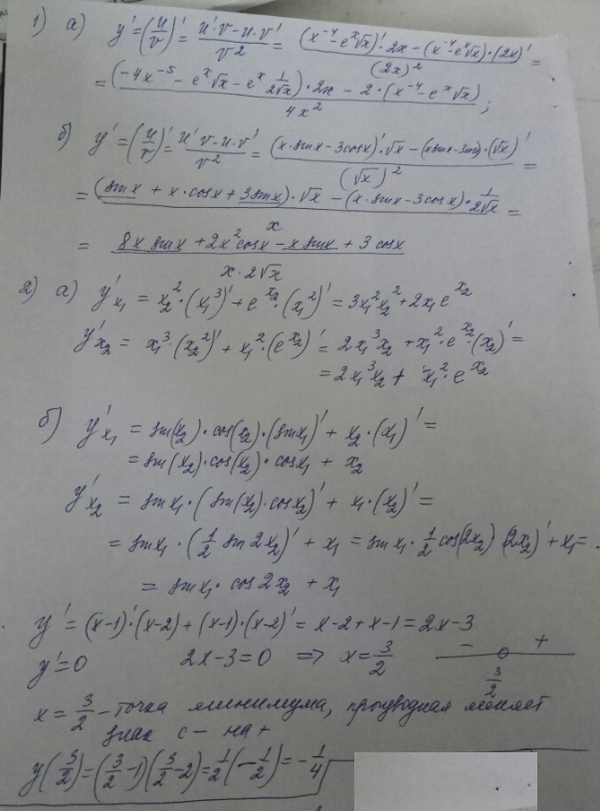 1) а) y' = (u/v)' = (u'·v - u·v')/v² = ((x⁻⁴ - eˣ√x)'·2x - (x⁻⁴ - eˣ√x)·(2x)')/(2x)² =
= ((-4x⁻⁵ - eˣ√x - eˣ 1/(2√x))·2x - 2·(x⁻⁴ - eˣ√x))/(4x²);
б) y' = (u/v)' = (u'v - u·v')/v² = ((x·sinx - 3cosx)'·√x - (x sinx - 3cosx)·(√x)')/(√x)² =
= ((sinx + x·cosx + 3sinx)·√x - (x·sinx - 3cosx)·1/(2√x))/x =
= (8x sinx + 2x²cosx - x sinx + 3cosx)/(x·2√x)
2) а) y'x₁ = x₂²·(x₁³)' + e^x₂·(x₁²)' = 3x₁²x₂² + 2x₁e^x₂
y'x₂ = x₁³·(x₂²)' + x₁²·(e^x₂)' = 2x₁³x₂ + x₁²·e^x₂·(x₂)' =
= 2x₁³x₂ + x₁²·e^x₂
б) y'x₁ = sin(x₂)·cos(x₂)·(sinx₁)' + x₂·(x₁)' =
= sin(x₂)·cos(x₂)·cosx₁ + x₂
y'x₂ = sinx₁·(sin(x₂)·cosx₂)' + x₁·(x₂)' =
= sinx₁·(1/2 sin2x₂)' + x₁ = sinx₁·1/2 cos(2x₂)(2x₂)' + x₁ =
= sinx₁·cos2x₂ + x₁
y' = (x-1)'·(x-2) + (x-1)·(x-2)' = x-2+x-1 = 2x-3
y'=0 2x-3=0 => x=3/2 - + 3/2
x = 3/2 - точка минимума, производная меняет
знак с - на +
y(3/2) = (3/2-1)(3/2-2) = 1/2(-1/2) = -1/4